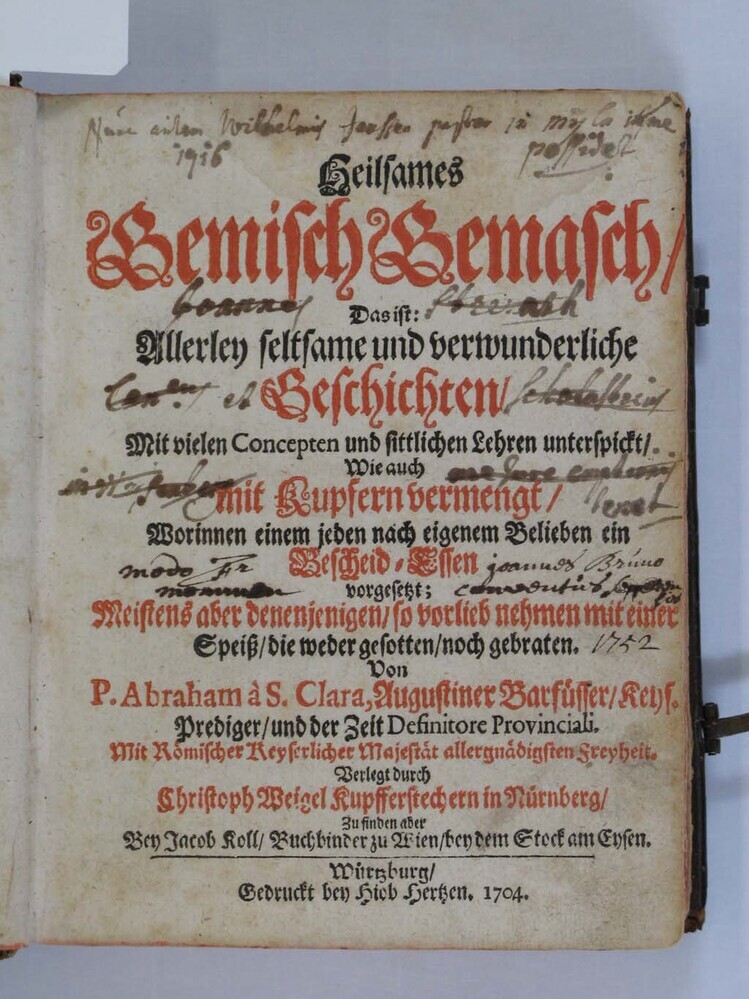 Wilhelmis
1916
possidet
Heilsames
Gemisch Gemasch/
Das ist:
Allerley seltsame und verwunderliche
et Geschichten/
Mit vielen Concepten und sittlichen Lehren unterspickt/
Wie auch
mit Kupfern vermengt/
Worinnen einem jeden nach eigenem Belieben ein
modo Fr Bescheid-Essen joannes Bruno
vorgesetzt;
Meistens aber denenjenigen/so vorlieb nehmen mit einer
Speiß/die weder gesotten/noch gebraten. 1752
Von
P. Abraham à S. Clara, Augustiner Barfüsser/Keys.
Prediger/und der Zeit Definitore Provinciali.
Mit Römischer Keyserlicher Majestät allergnädigsten Freyheit.
Verlegt durch
Christoph Weigel Kupfferstechern in Nürnberg/
Zu finden aber
Bey Jacob Koll/ Buchbinder zu Wien/bey dem Stock am Eysen.
Würtzburg/
Gedruckt bey Hiob Hertzen. 1704.